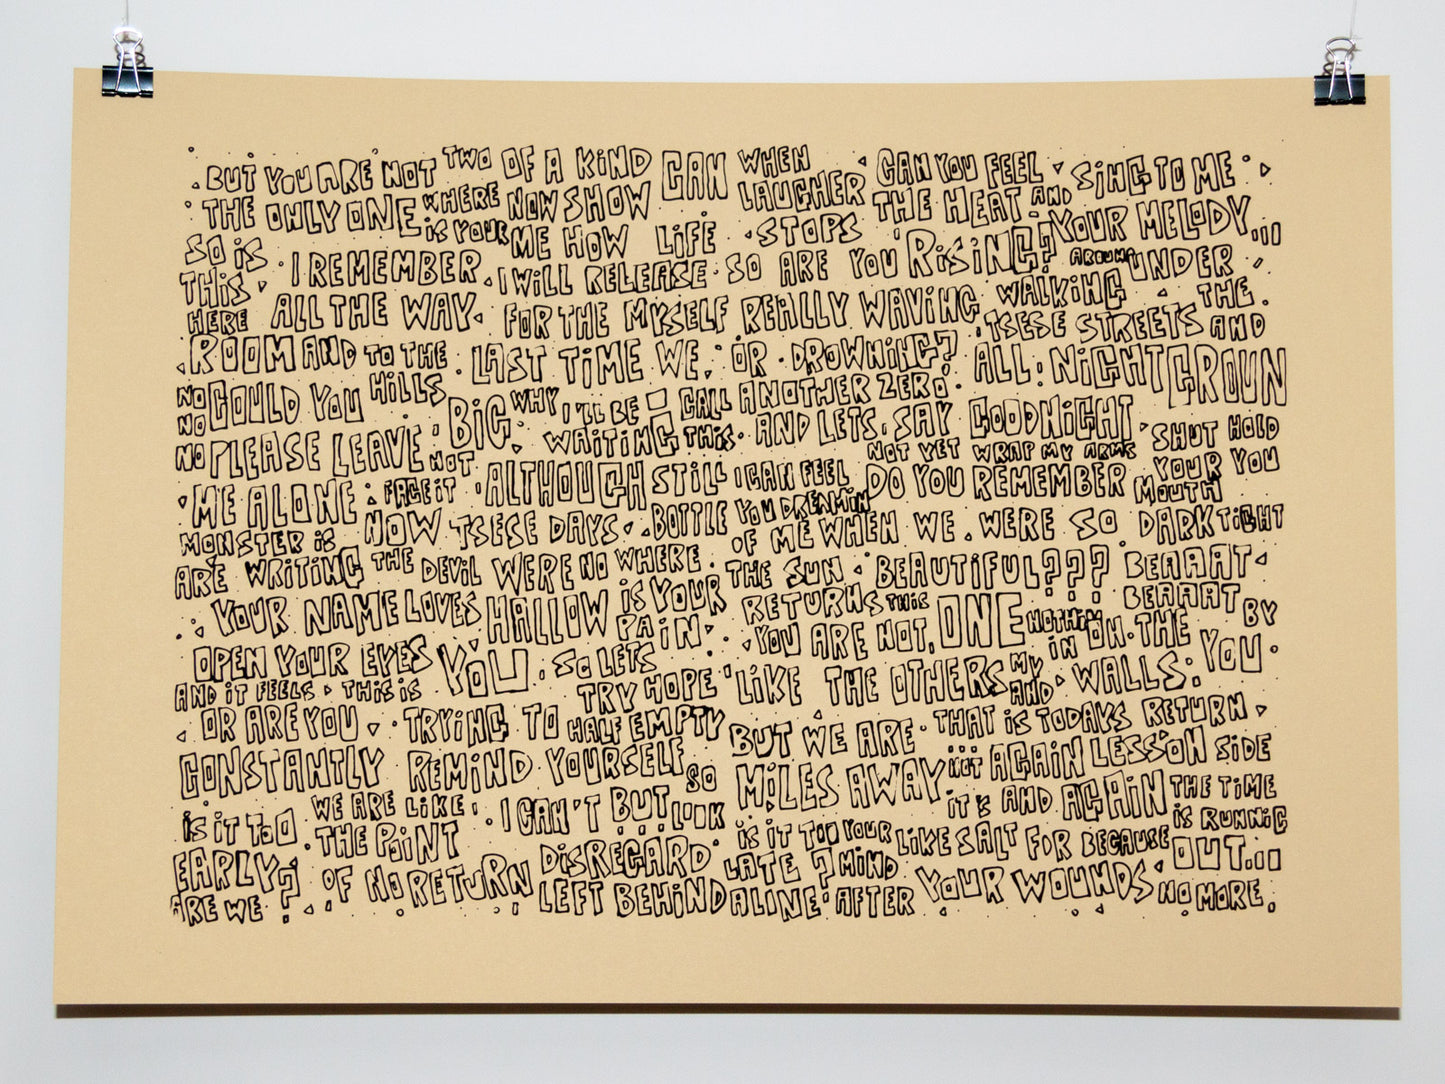 BUT YOU ARE NOT TWO OF A KIND CAN WHEN CAN YOU FEEL SING TO ME
THE ONLY ONE WHERE NOW SHOW LAUGHER THE HEAT AND
SO IS IS YOUR ME HOW LIFE STOPS YOUR MELODY...
THIS I REMEMBER I WILL RELEASE SO ARE YOU RISING? AROUND UNDER
HERE ALL THE WAY FOR THE MYSELF REALLY WAVING WALKING THE
ROOM AND TO THE LAST TIME WE, OR DROWNING? TSESE STREETS AND
NO COULD YOU HILLS BIG WHY I'LL BE CALL ANOTHER ZERO ALL NIGHT GROUN
NO
NO PLEASE LEAVE NOT WAITING THIS AND LETS SAY GOODNIGHT SHUT HOLD
ME ALONE FACE IT ALTHOUGH STILL I CAN FEEL NOT YET WRAP MY ARMS YOUR YOU
MONSTER IS NOW TSESE DAYS BOTTLE YOU DREAMIN DO YOU REMEMBER MOUTH
ARE WRITING THE DEVIL WERE NO WHERE OF ME WHEN WE WERE SO DARK TIGHT
YOUR NAME LOVES HALLOW IS YOUR THE SUN BEAUTIFUL??? BEAAAT
OPEN YOUR EYES YOU PAIN RETURNS THIS ONE NOTHIN BEAAAT BY
AND IT FEELS THIS IS SO LETS YOU ARE NOT, IN ON THE YOU
OR ARE YOU TRYING TO TRY HOPE LIKE THE OTHERS MY AND WALLS
CONSTANTLY REMIND YOURSELF HALF EMPTY BUT WE ARE THAT IS TODAYS RETURN
IS IT TOO WE ARE LIKE I CAN'T BUT SO LOOK MILES AWAY... NOT AGAIN LESSON SIDE
EARLY? THE POINT DISREGARD IS IT TOO YOUR IT'S AND AGAIN THE TIME
ARE WE OF NO RETURN LEFT BEHIND LATE? MIND LIKE SALT FOR BECAUSE IS RUNNIG
ALINE AFTER YOUR WOUNDS OUT...
NO MORE.